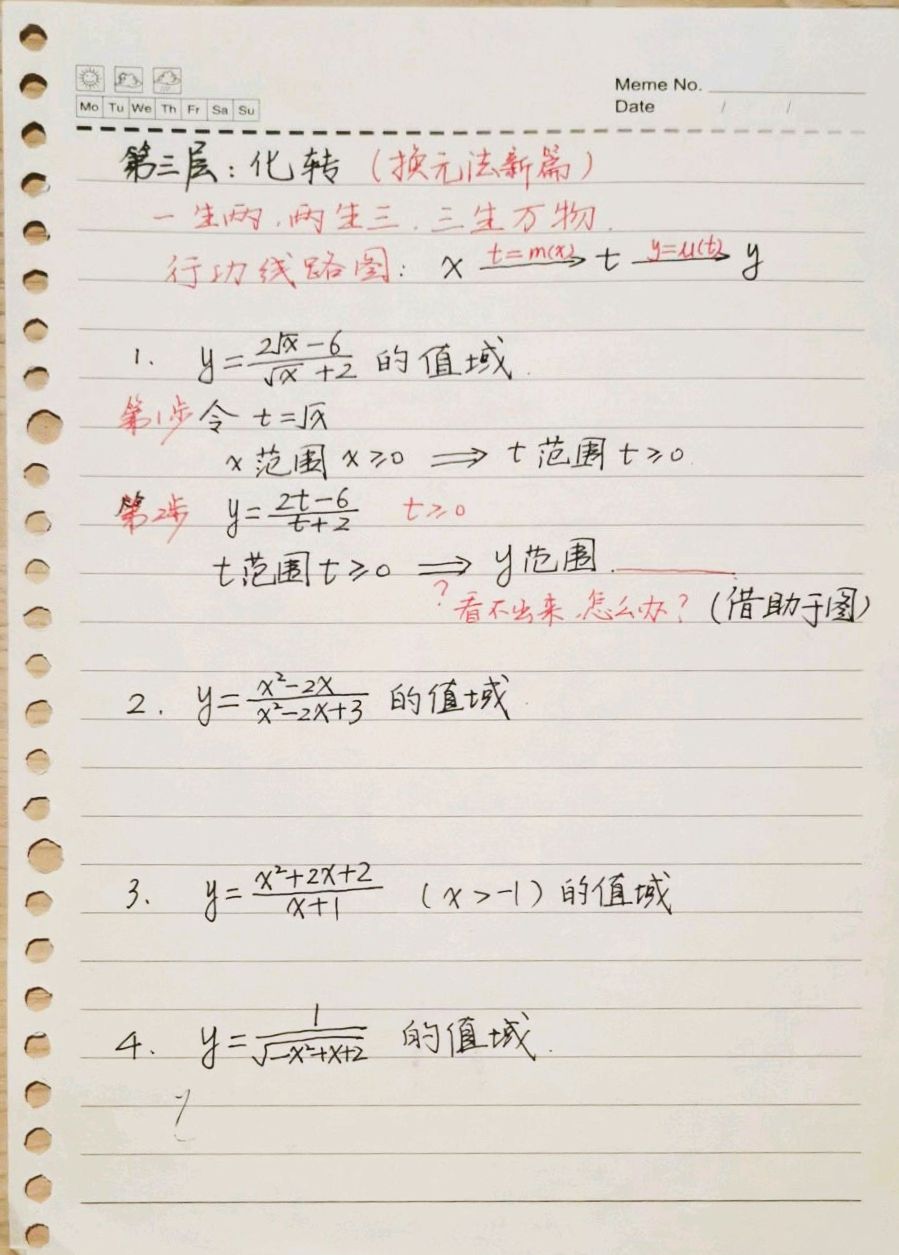 Meme No.
Mo Tu We Th Fr Sa Su
Date / /
第三层：化转（换元法新篇）
一生两，两生三，三生万物．
行功线路图： x \xrightarrow{t=m(x)} t \xrightarrow{y=u(t)} y
1. y=\frac{2\sqrt{x}-6}{\sqrt{x}+2} 的值域．
第1步 令 t=\sqrt{x}
x 范围 x≥0 ⟹ t 范围 t≥0．
第2步 y=\frac{2t-6}{t+2} t≥0
t范围 t≥0 ⟹ y范围
? 看不出来，怎么办？（借助于图）
2. y=\frac{x²-2x}{x²-2x+3} 的值域．
3. y=\frac{x²+2x+2}{x+1} （x>-1）的值域
4. y=\frac{1}{\sqrt{-x²+x+2}} 的值域．